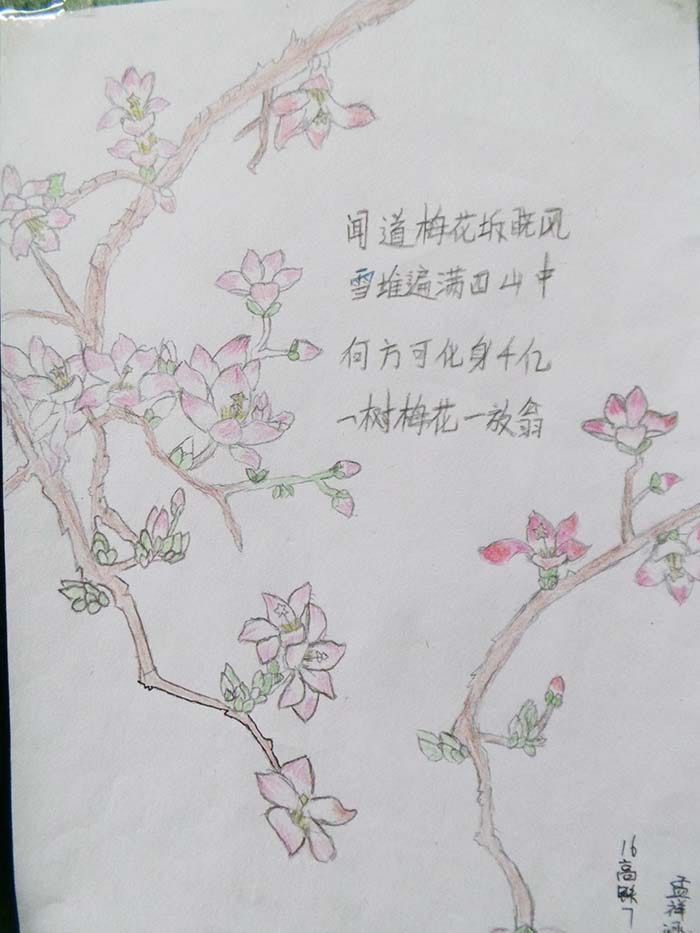 闻道梅花坼晓风
雪堆遍满四山中
何方可化身千亿
一树梅花一放翁
16高 7
孟祥